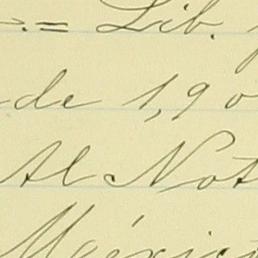 Lib.
de 1,90
Al Not
Méxic